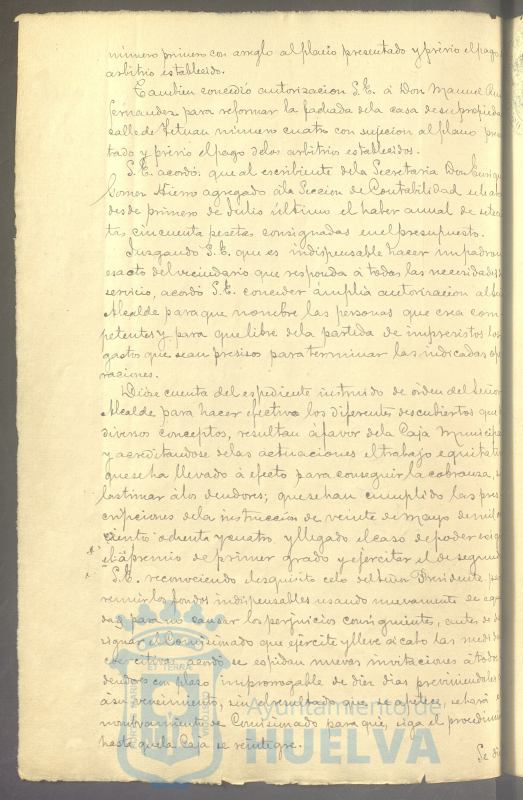 número primero con arreglo al plano presentado y previo el pago
arbitrio establecido.
Tambien concedió autorizacion S.E. á Don Manuel
Fernandez para reformar la fachada dela casa desu propieda
calle de Tetuan número cuatro con sujecion al plano pre
tado y previo el pago delos arbitrios establecidos.
S.E. acordó: que al escribiente dela Secretaria Don Enriq
Gomez Hierro agregado ála Seccion de Contabilidad
desde primero de Julio último el haber anual de setec
tas cincuenta pesetas consignadas en el presupuesto.
Juzgando S.E. que es indispensable hacer un padron
esacto del vecindario que responda á todas las necesidades
servicio, acordó S.E. conceder ámplia autorizacion al
Alcalde para que nombre las personas que crea com
petentes y para que libre dela partida de imprevistos los
gastos que sean precisos para terminar las indicadas ope
raciones.
Diose cuenta del espediente instruido de órden del Señor
Alcalde para hacer efectivo los diferentes descubiertos que
diversos conceptos, resultan á favor dela Caja Municipa
y acreditandose delas actuaciones el trabajo equitativ
que se ha llevado á efecto para conseguir la cobranza, s
lastimar álos deudores; que se han cumplido las pres
cripciones dela instruccion de veinte de Mayo de mil
ciento ochenta y cuatro, y llegado el caso de poder
el apremio de primer grado y ejercitar el de segun
S.E. reconociendo el esquisito celo del Señor Presidente
reunir los fondos indispensables usando nuevamente de
y para no causar los perjuicios consiguientes, antes de de
signar el Comisionado que ejercite y lleve á cabo las medida
coercitivas, acordó se espidan nuevas invitaciones á todos
deudores con plazo improrrogable de diez dias previniendoles
á su vencimiento, sin el resultado que se apetece, se hará
nombramiento de Comisionado para que, siga el procedim
hasta que la Caja se reintegre.
Se di
Ayuntamiento de
HUELVA